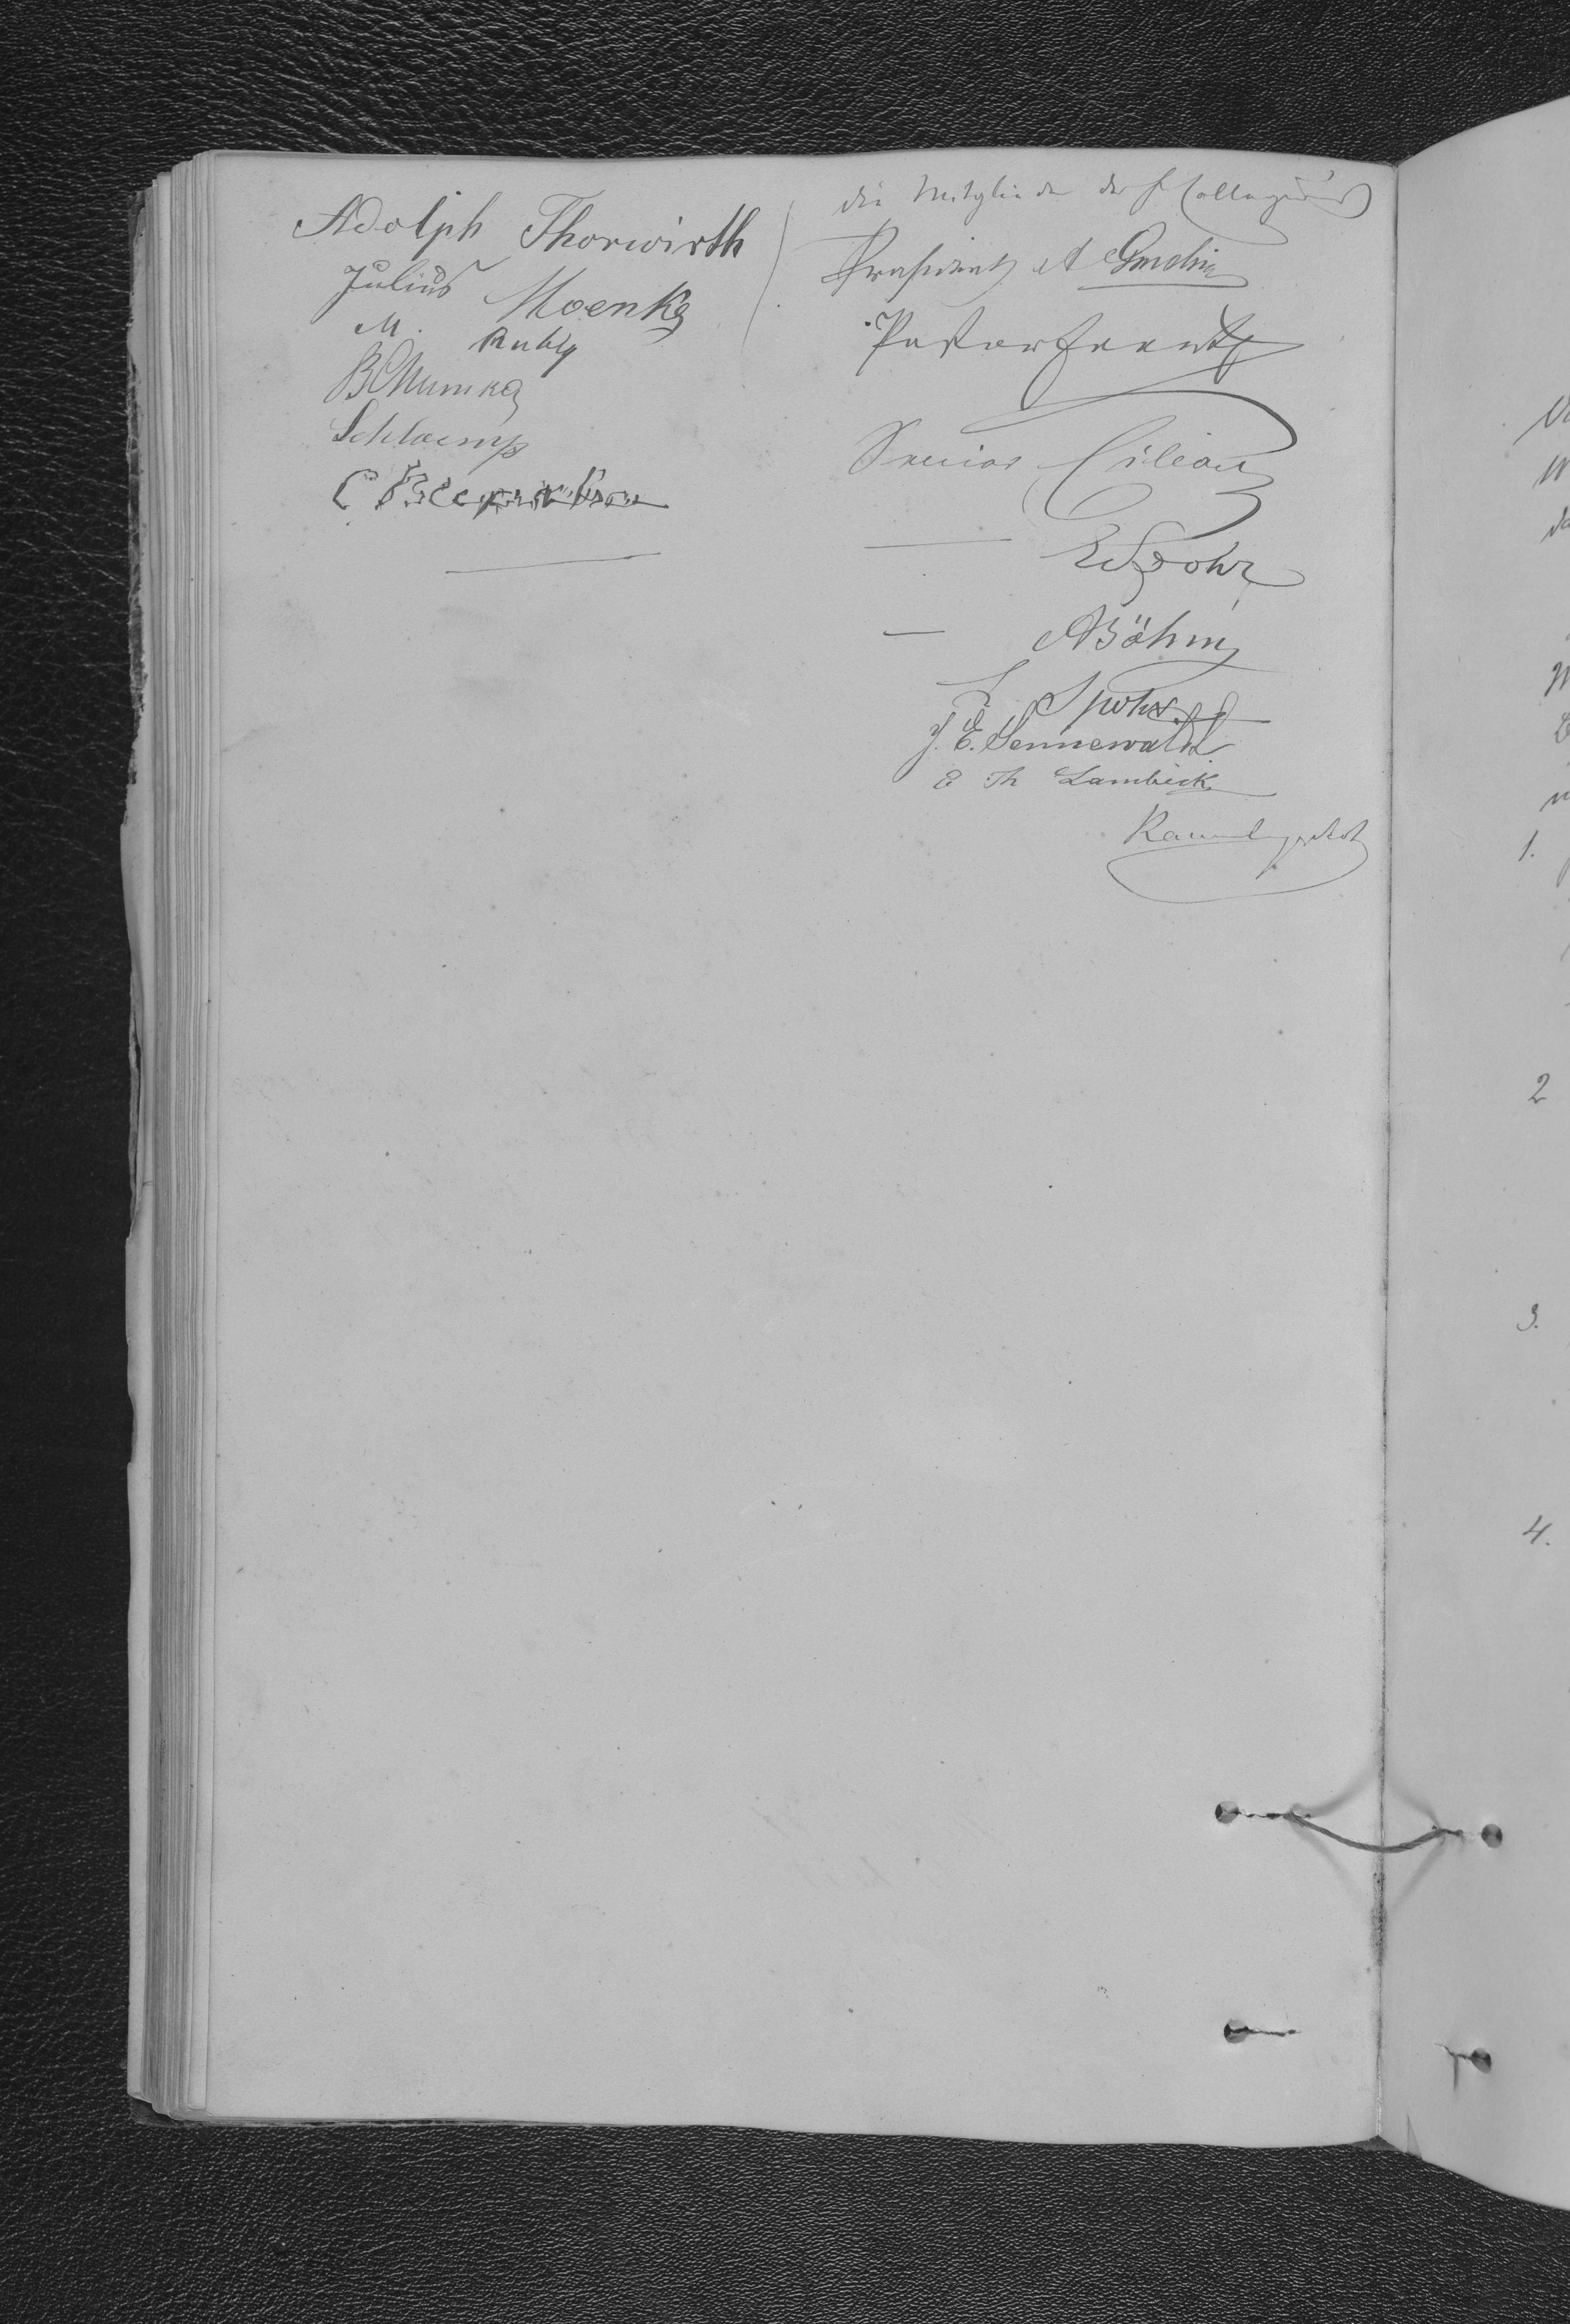 Adolph Thorwirth
Julius Moenke
M. Ruhly
B Mumke
Schloemp
die Mitglieder des Collegiums
Praesident A Gmelin
Pastor Frantz
Senior Cilian
— E Spohr
— A Böhm
L Spohr
J. E. Sennewald
E Th Lambeck
1.
2
3.
4.